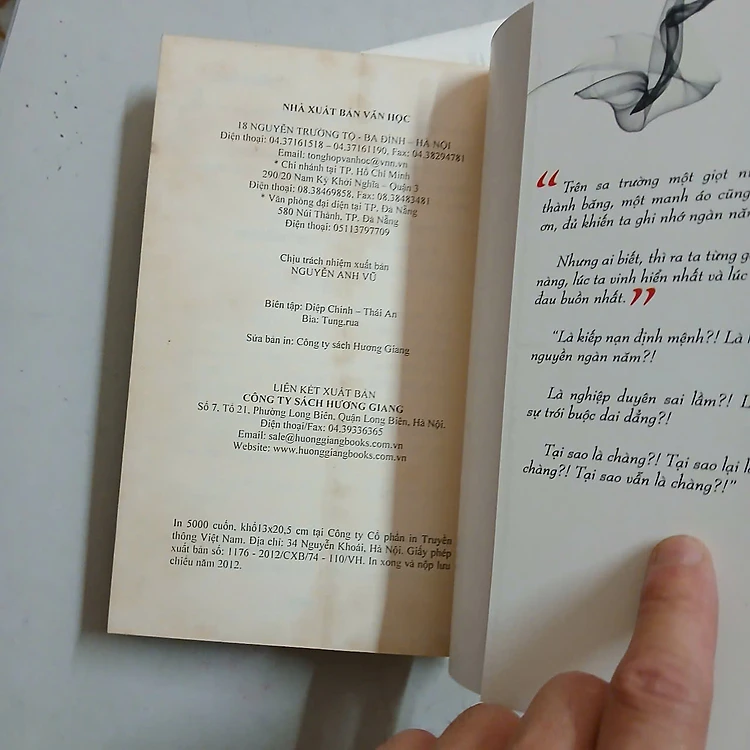 NHÀ XUẤT BẢN VĂN HỌC
18 NGUYỄN TRƯỜNG TỘ - BA ĐÌNH – HÀ NỘI
Điện thoại: 04.37161518 – 04.37161190, Fax: 04.38294781
Email: tonghopvanhoc@vnn.vn
* Chi nhánh tại TP. Hồ Chí Minh
290/20 Nam Kỳ Khởi Nghĩa – Quận 3
Điện thoại: 08.38469858, Fax: 08.38483481
* Văn phòng đại diện tại TP. Đà Nẵng
580 Núi Thành, TP. Đà Nẵng
Điện thoại: 05113797709
Chịu trách nhiệm xuất bản
NGUYỄN ANH VŨ
Biên tập: Diệp Chinh – Thái An
Bìa: Tung.rua
Sửa bản in: Công ty sách Hương Giang
LIÊN KẾT XUẤT BẢN
CÔNG TY SÁCH HƯƠNG GIANG
Số 7, Tổ 21, Phường Long Biên, Quận Long Biên, Hà Nội.
Điện thoại/Fax: 04.39336365
Email: sale@huonggiangbooks.com.vn
Website: www.huonggiangbooks.com.vn
In 5000 cuốn, khổ13x20,5 cm tại Công ty Cổ phần in Truyền
thông Việt Nam. Địa chỉ: 34 Nguyễn Khoái, Hà Nội. Giấy phép
xuất bản số: 1176 - 2012/CXB/74 - 110/VH. In xong và nộp lưu
chiểu năm 2012.
“Trên sa trường một giọt
thành băng, một manh áo cũng
ơn, đủ khiến ta ghi nhớ ngàn năm
Nhưng ai biết, thì ra ta từng
nàng, lúc ta vinh hiển nhất và lúc
đau buồn nhất.”
“Là kiếp nạn định mệnh?! Là
nguyền ngàn năm?!
Là nghiệp duyên sai lầm?!
sự trói buộc dai dẳng?!
Tại sao là chàng?! Tại sao lại
chàng?! Tại sao vẫn là chàng?!”